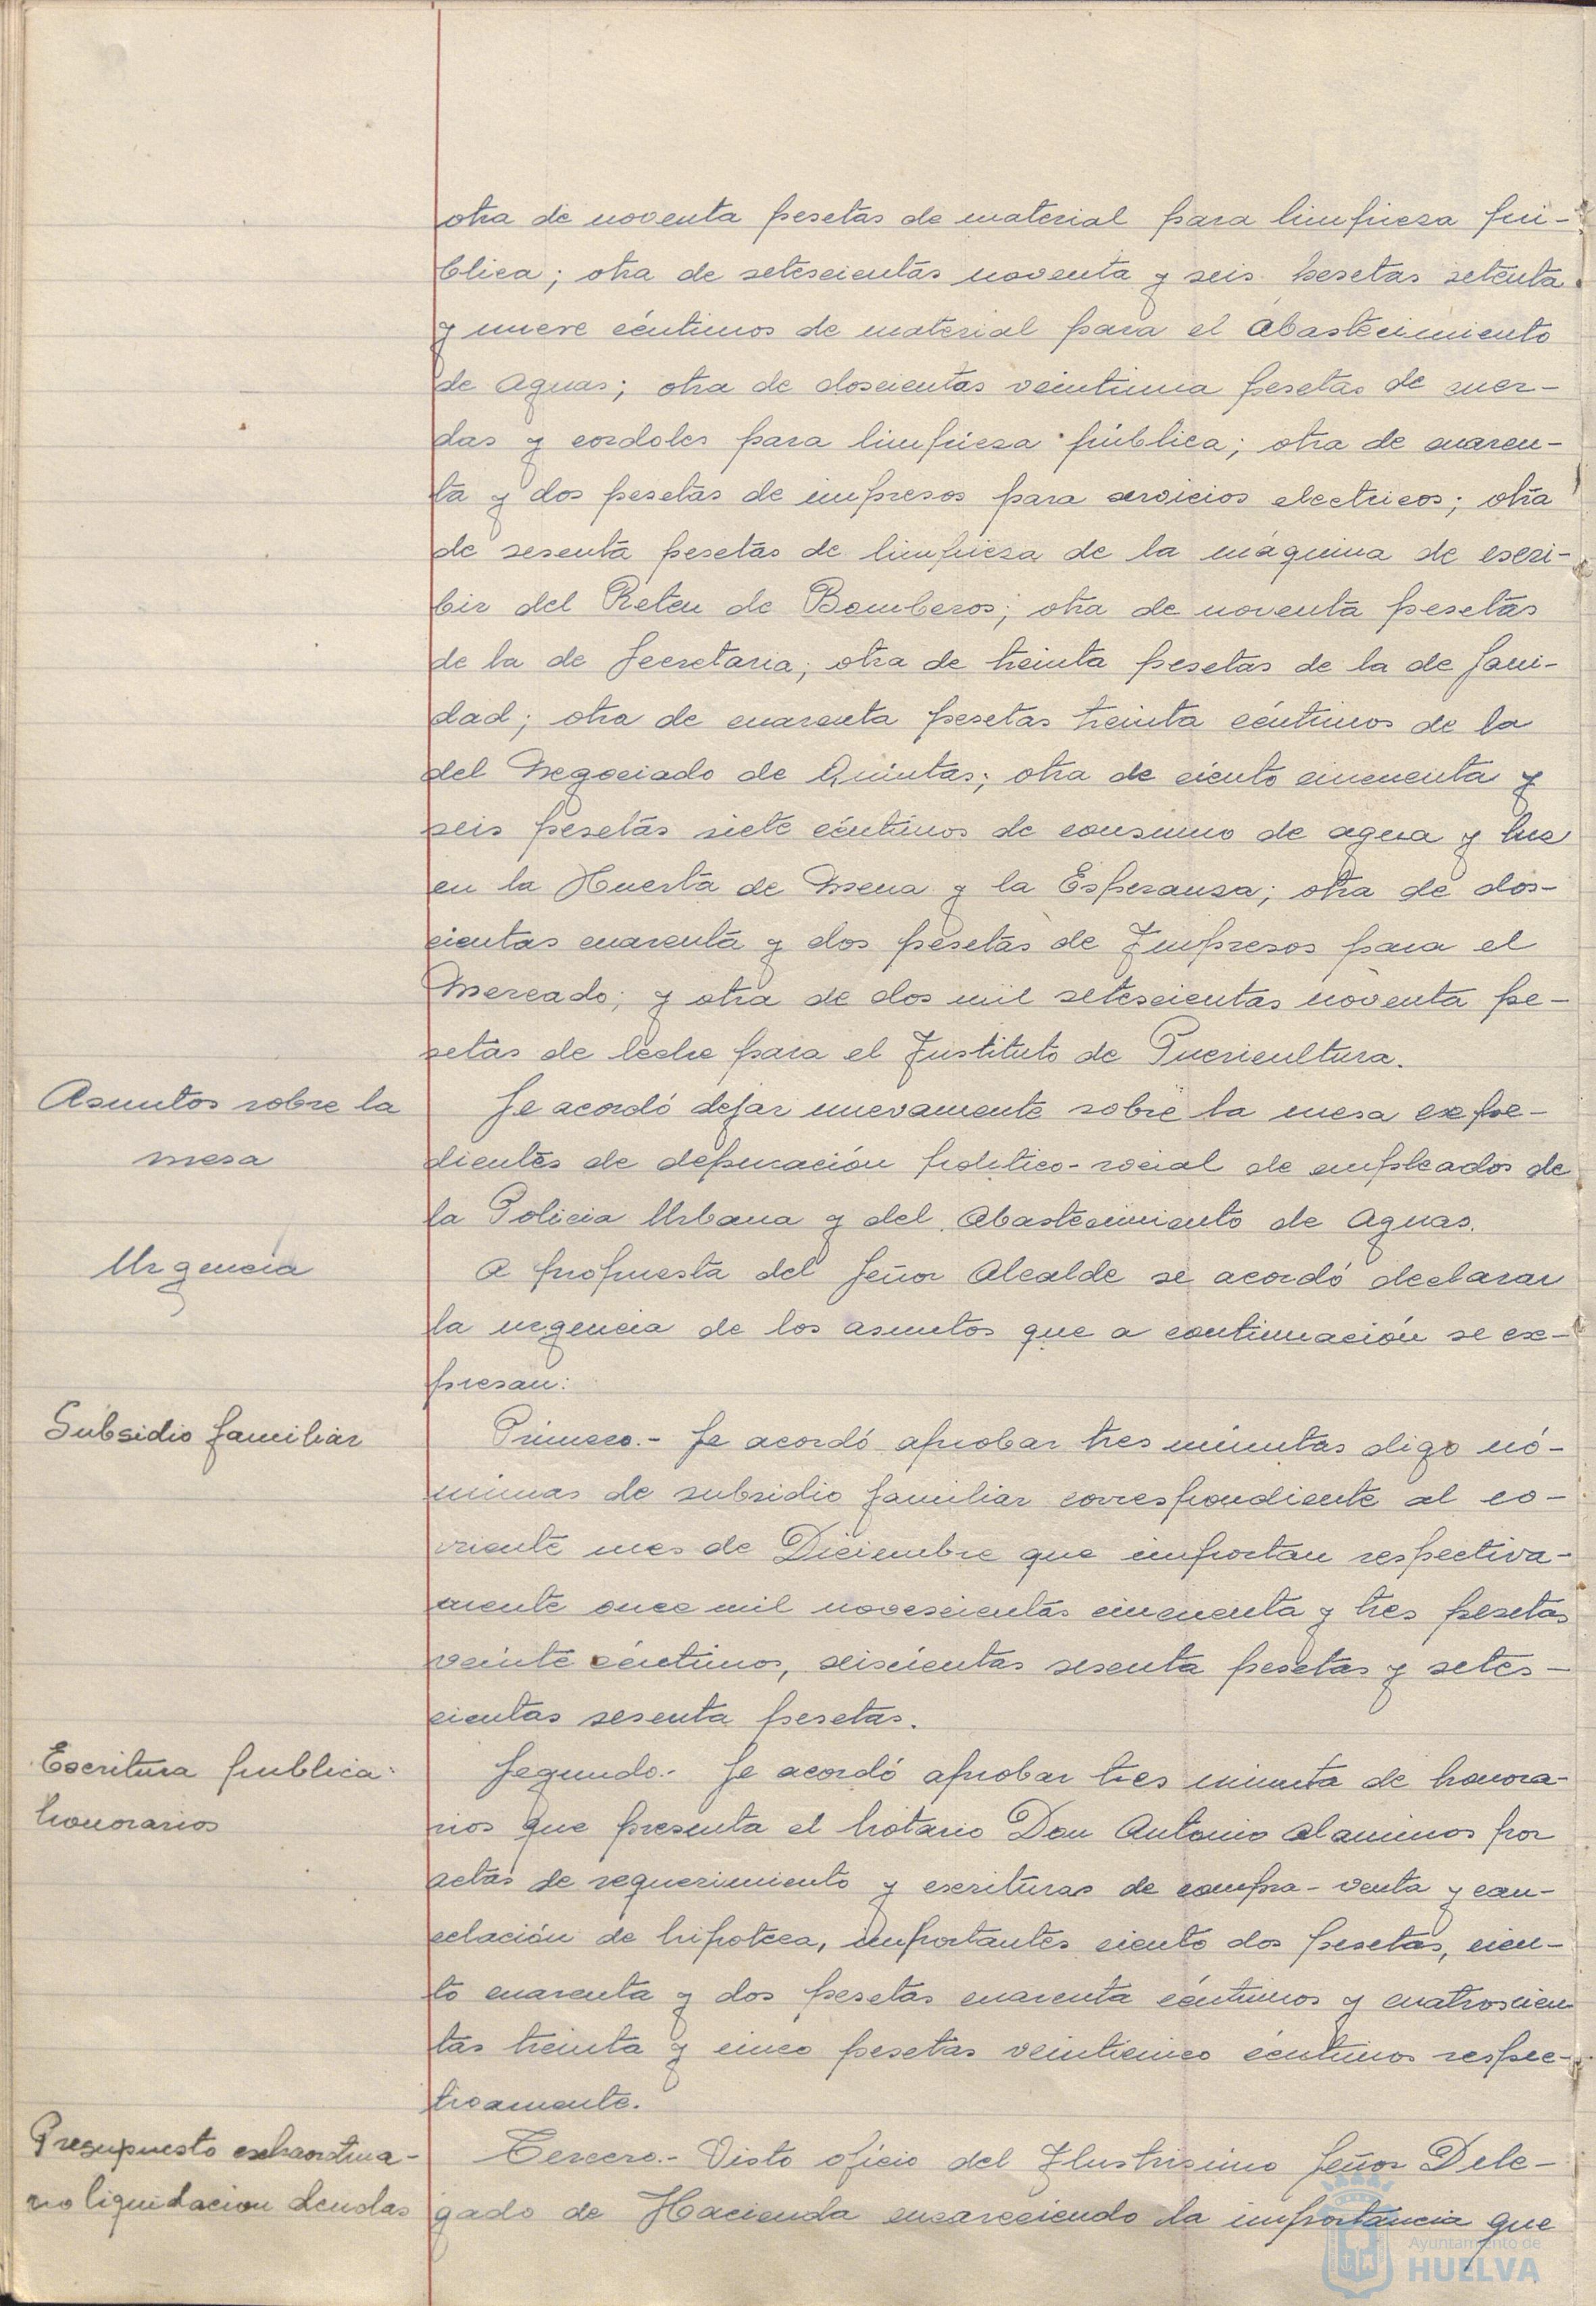 otra de noventa pesetas de material para limpieza pú-
blica; otra de setescientas noventa y seis pesetas setenta
y nueve céntimos de material para el Abastecimiento
de Aguas; otra de doscientas veintiuna pesetas de cuer-
das y cordoles para limpieza pública; otra de cuaren-
ta y dos pesetas de impresos para servicios electricos; otra
de sesenta pesetas de limpieza de la máquina de escri-
bir del Reten de Bomberos; otra de noventa pesetas
de la de Secretaria; otra de treinta pesetas de la de Sani-
dad; otra de cuarenta pesetas treinta céntimos de la
del Negociado de Quintas; otra de ciento cincuenta y
seis pesetas siete céntimos de consumo de agua y luz
en la Huerta de Mena y la Esperanza; otra de dos-
cientas cuarenta y dos pesetas de Impresos para el
Mercado; y otra de dos mil setescientas noventa pe-
setas de leche para el Instituto de Puericultura.
Asuntos sobre la
mesa
Se acordó dejar nuevamente sobre la mesa expe-
dientes de depuración politico-social de empleados de
la Policia Urbana y del Abastecimiento de Aguas.
Urgencia
A propuesta del Señor Alcalde se acordó declarar
la urgencia de los asuntos que a continuación se ex-
presan:
Subsidio familiar
Primero.- Se acordó aprobar tres minutas digo nó-
minas de subsidio familiar correspondiente al co-
rriente mes de Diciembre que importan respectiva-
mente once mil novescientas cincuenta y tres pesetas
veinte céntimos, seiscientas sesenta pesetas y setes-
cientas sesenta pesetas.
Escritura publica:
honorarios
Segundo.- Se acordó aprobar tres minuta de honora-
rios que presenta el Notario Don Antonio Alaminos por
actas de requerimiento y escrituras de compra-venta y can-
celación de hipoteca, importantes ciento dos pesetas, cien-
to cuarenta y dos pesetas cuarenta céntimos y cuatroscien
tas treinta y cinco pesetas veinticinco céntimos respec-
tivamente.
Presupuesto extraordina-
rio liquidacion deudas
Tercero.- Visto oficio del Ilustrisimo Señor Dele-
gado de Hacienda encareciendo la importancia que
Ayuntamiento de
HUELVA